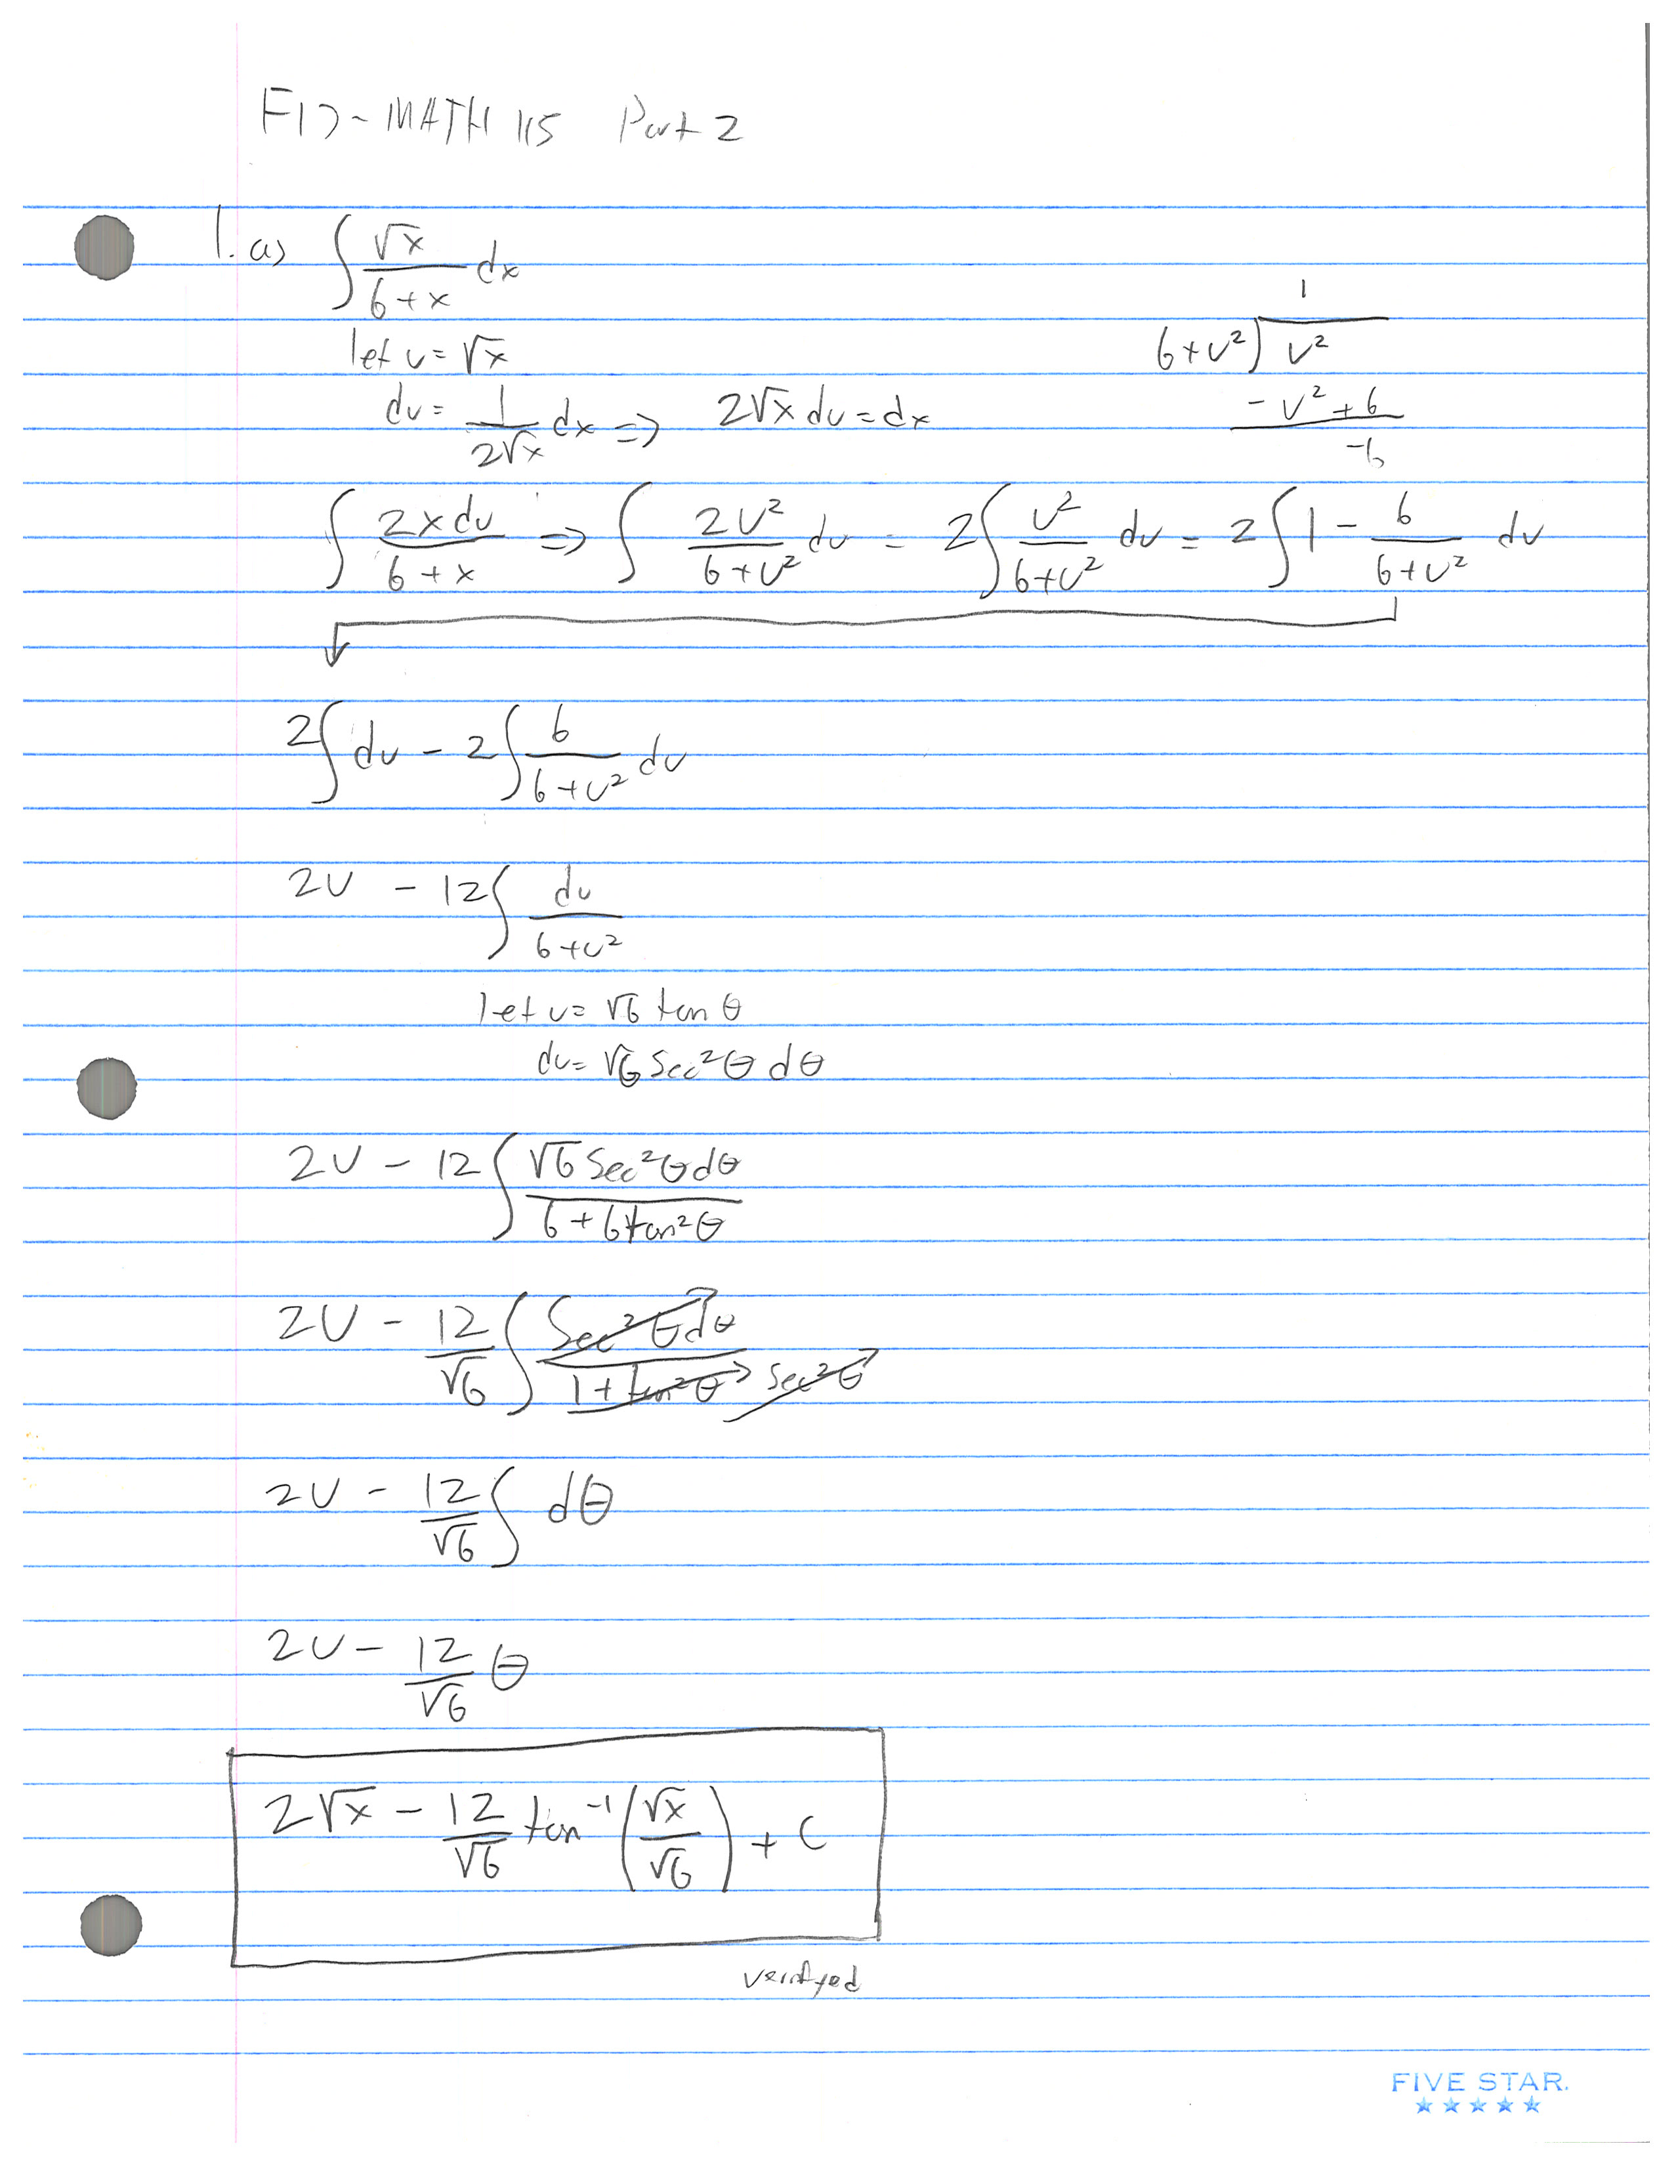 F17-MATH 115 Part 2
1. a) ∫ √x/(6+x) dx
let u = √x
du = 1/(2√x) dx ⇒ 2√x du = dx
1
6+u² ) u²
- u² + 6
-6
∫ 2x du/(6+x) ⇒ ∫ 2u²/(6+u²) du = 2∫ u²/(6+u²) du = 2∫ 1 - 6/(6+u²) du
2∫ du - 2∫ 6/(6+u²) du
2u - 12∫ du/(6+u²)
let u = √6 tan θ
du = √6 sec²θ dθ
2u - 12∫ √6 sec²θ dθ/(6+6tan²θ)
2u - 12/√6 ∫ sec²θ dθ/(1+tan²θ) sec²θ
2u - 12/√6 ∫ dθ
2u - 12/√6 θ
2√x - 12/√6 tan⁻¹(√x/√6) + C
verifyed
FIVE STAR.
★★★★★